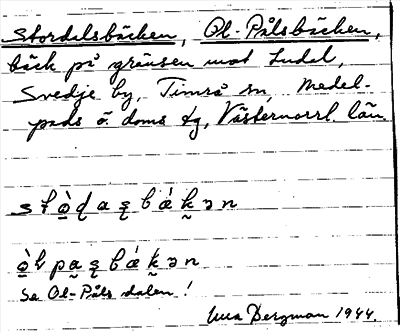 Stordalsbäcken, Ol-Pålsbäcken,
bäck på gränsen mot Indal,
Svedje by, Timrå sn, Medel-
pads ö. doms tg, Västernorrl. län.
Se Ol-Påls dalen!
Bergman 1944.